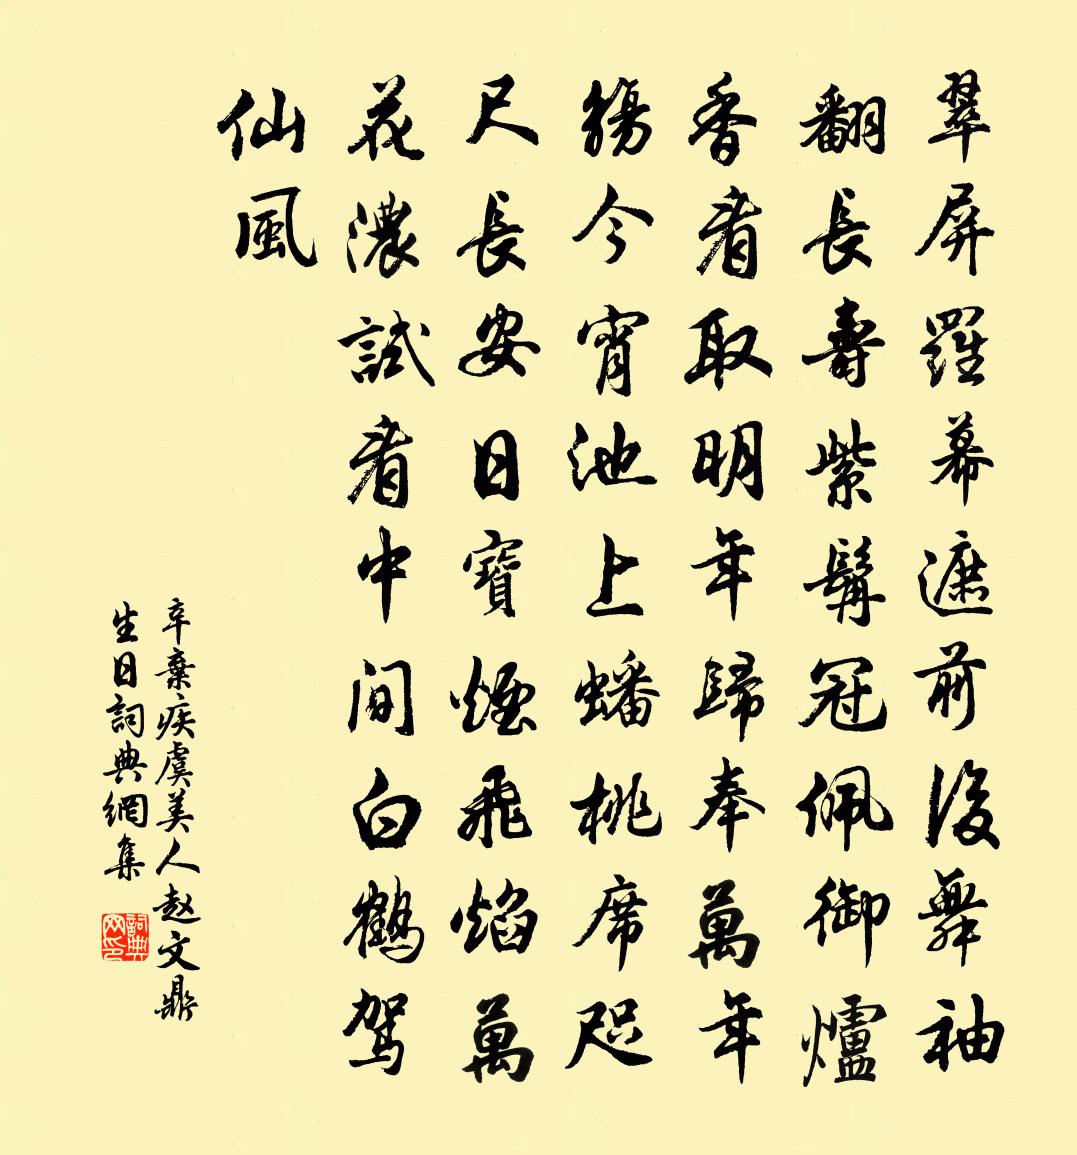 翠屏羅幕遮前後舞袖
翻長壽紫髯冠佩御爐
香看取明年歸奉萬年
觴今宵池上蟠桃席咫
尺長安日寶煙飛焰萬
花濃試看中間白鶴駕
仙風
辛棄疾虞美人赵文鼎
生日詞典網集
詞典
网印